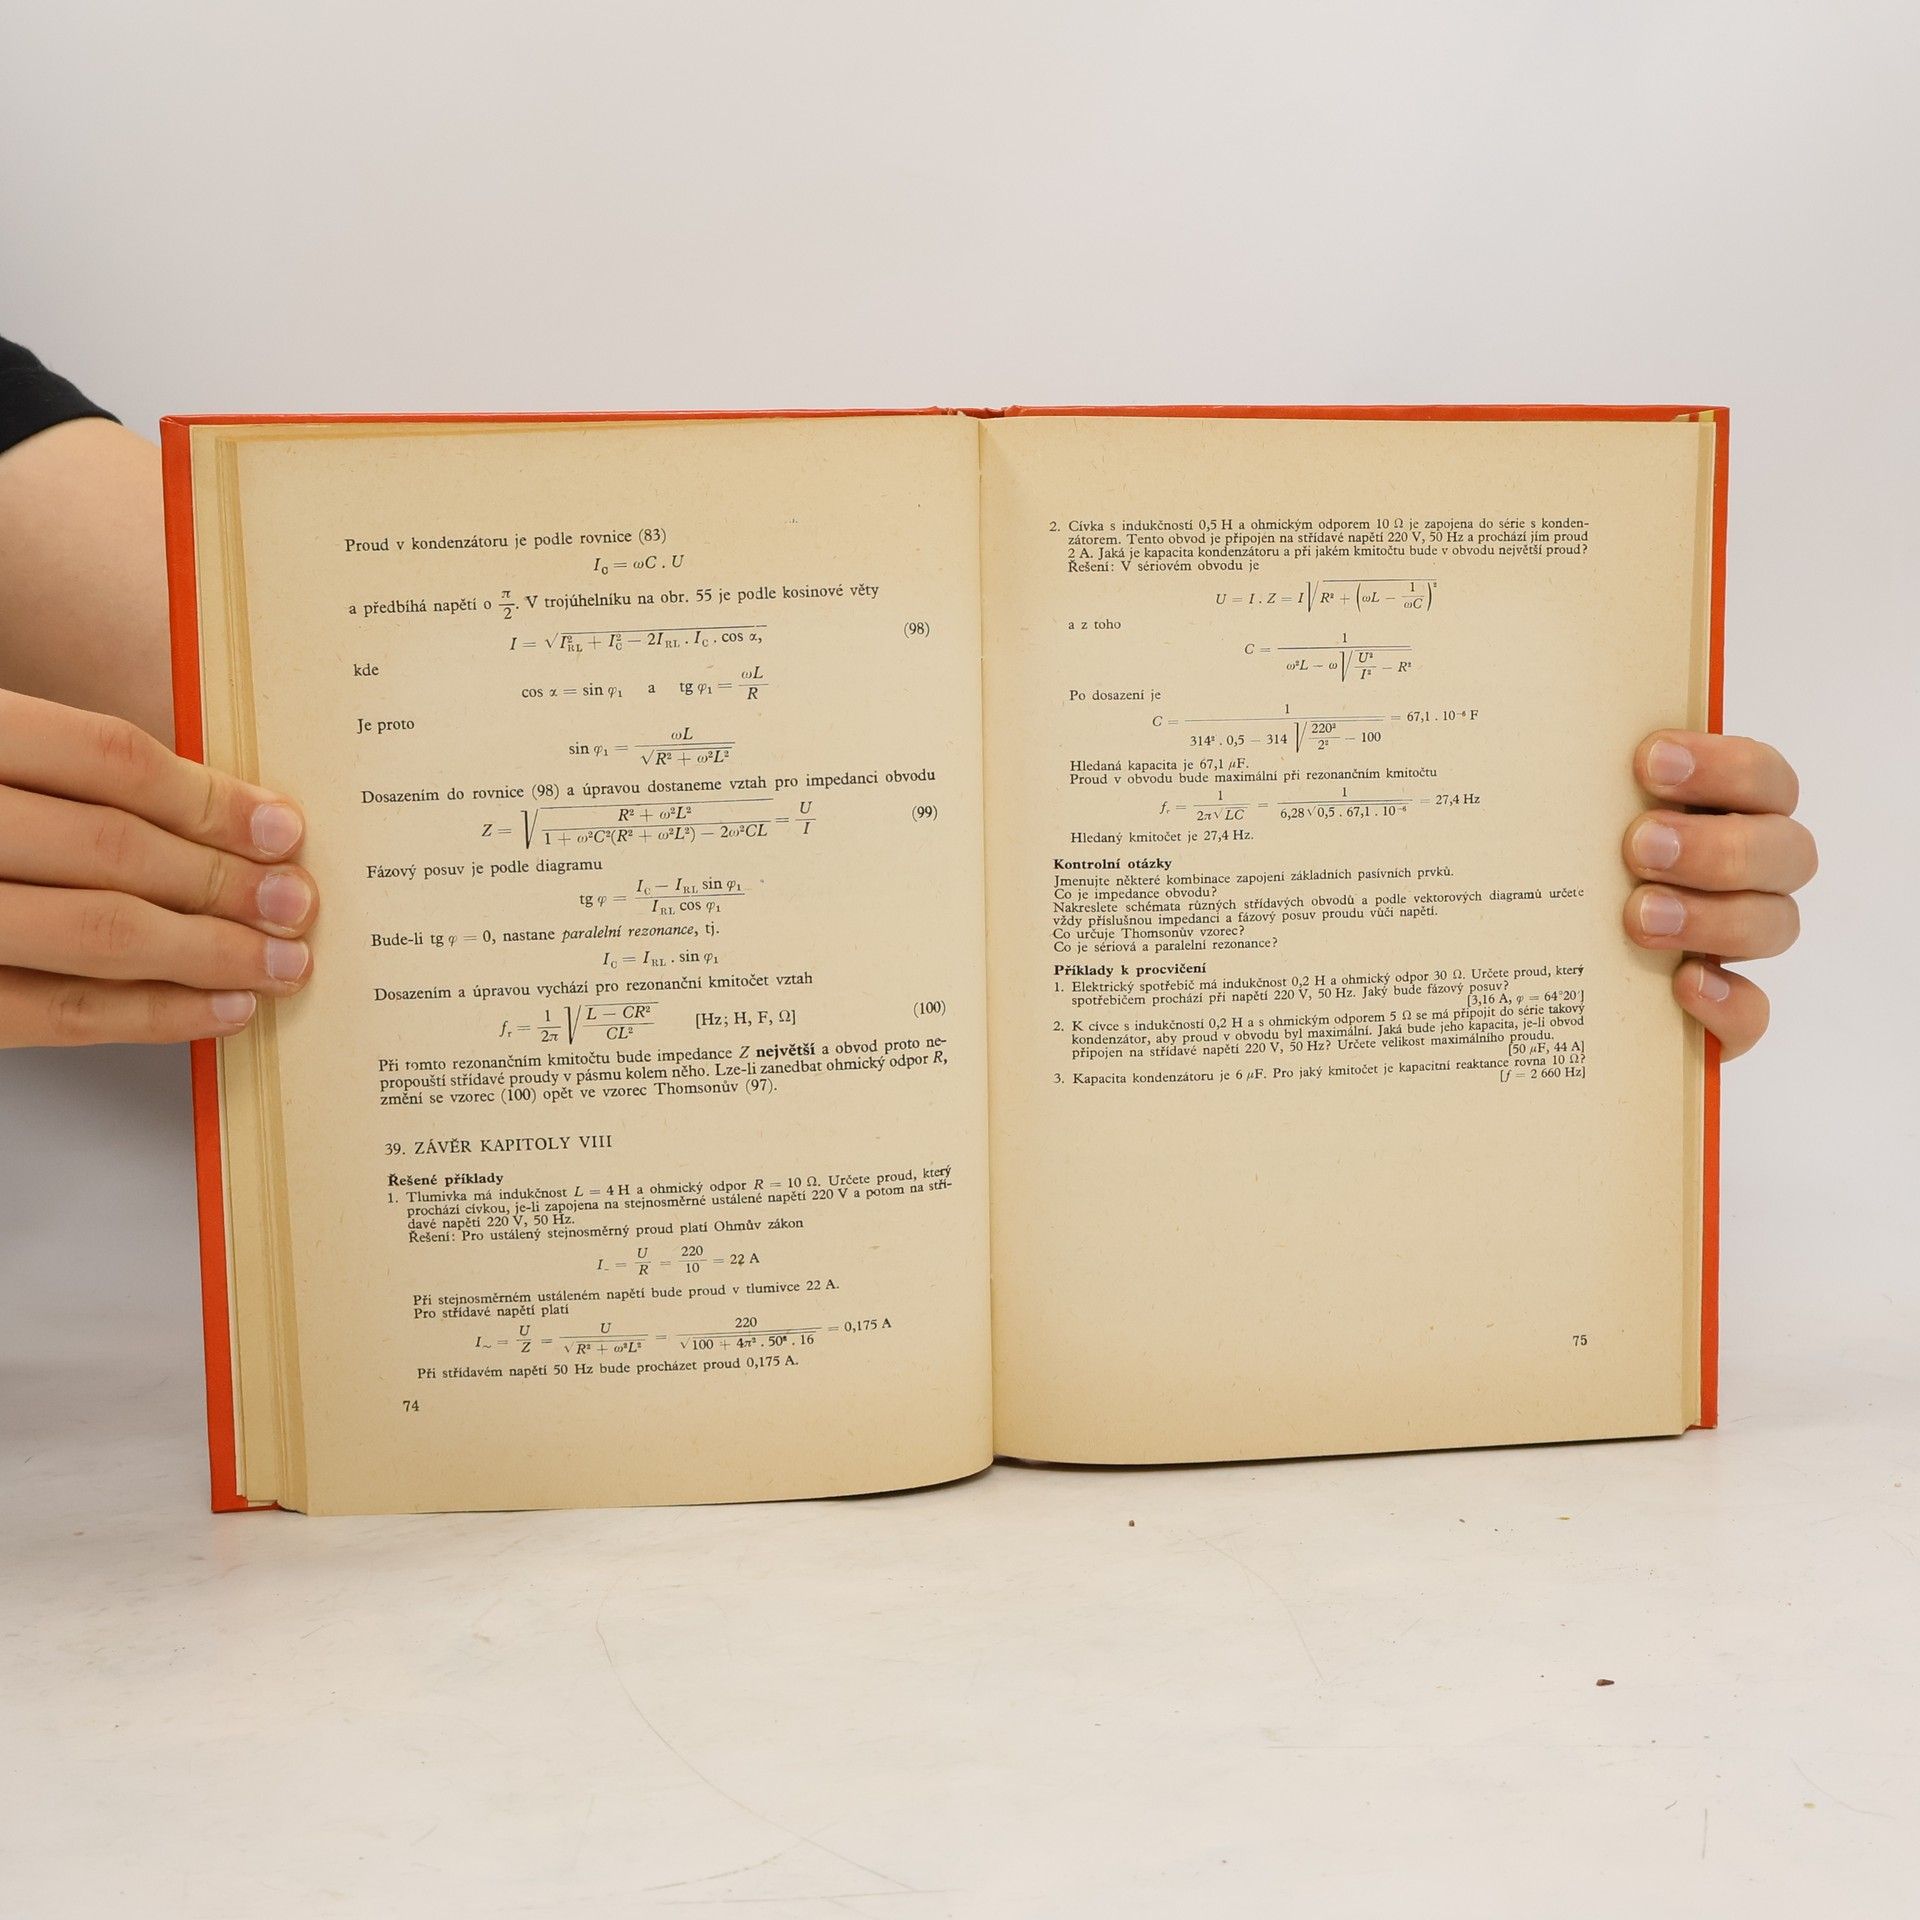 Proud v kondenzátoru je podle rovnice (83)
I_C = ωC . U
a předbíhá napětí o π/2. V trojúhelníku na obr. 55 je podle kosinové věty
I = √(I²_RL + I²_C − 2I_RL . I_C . cos α, (98)
kde
cos α = sin φ₁ a tg φ₁ = ωL/R
Je proto
sin φ₁ = ωL/√(R² + ω²L²)
Dosazením do rovnice (98) a úpravou dostaneme vztah pro impedanci obvodu
Z = √((R² + ω²L²)/(1 + ω²C²(R² + ω²L²) − 2ω²CL)) = U/I (99)
Fázový posuv je podle diagramu
tg φ = (I_C − I_RL sin φ₁)/(I_RL cos φ₁)
Bude-li tg φ = 0, nastane paralelní rezonance, tj.
I_C = I_RL . sin φ₁
Dosazením a úpravou vychází pro rezonanční kmitočet vztah
f_r = 1/2π √((L − CR²)/CL²) [Hz; H, F, Ω] (100)
Při tomto rezonančním kmitočtu bude impedance Z největší a obvod proto ne-
propouští střídavé proudy v pásmu kolem něho. Lze-li zanedbat ohmický odpor R,
změní se vzorec (100) opět ve vzorec Thomsonův (97).
39. ZÁVĚR KAPITOLY VIII
Řešené příklady
1. Tlumivka má indukčnost L = 4 H a ohmický odpor R = 10 Ω. Určete proud, který
prochází cívkou, je-li zapojena na stejnosměrné ustálené napětí 220 V a potom na stří-
davé napětí 220 V, 50 Hz.
Řešení: Pro ustálený stejnosměrný proud platí Ohmův zákon
I₋ = U/R = 220/10 = 22 A
Při stejnosměrném ustáleném napětí bude proud v tlumivce 22 A.
Pro střídavé napětí platí
I~ = U/Z = U/√(R² + ω²L²) = 220/√(100 + 4π² . 50² . 16) = 0,175 A
Při střídavém napětí 50 Hz bude procházet proud 0,175 A.
74
2. Cívka s indukčností 0,5 H a ohmickým odporem 10 Ω je zapojena do série s konden-
zátorem. Tento obvod je připojen na střídavé napětí 220 V, 50 Hz a prochází jím proud
2 A. Jaká je kapacita kondenzátoru a při jakém kmitočtu bude v obvodu největší proud?
Řešení: V sériovém obvodu je
U = I . Z = I√(R² + (ωL − 1/ωC)²)
a z toho
C = 1/(ω²L − ω√(U²/I² − R²))
Po dosazení je
C = 1/(314² . 0,5 − 314 √(220²/2² − 100)) = 67,1 . 10⁻⁶ F
Hledaná kapacita je 67,1 μF.
Proud v obvodu bude maximální při rezonančním kmitočtu
f_r = 1/(2π√LC) = 1/(6,28√(0,5 . 67,1 . 10⁻⁶)) = 27,4 Hz
Hledaný kmitočet je 27,4 Hz.
Kontrolní otázky
Jmenujte některé kombinace zapojení základních pasívních prvků.
Co je impedance obvodu?
Nakreslete schémata různých střídavých obvodů a podle vektorových diagramů určete
vždy příslušnou impedanci a fázový posuv proudu vůči napětí.
Co určuje Thomsonův vzorec?
Co je sériová a paralelní rezonance?
Příklady k procvičení
1. Elektrický spotřebič má indukčnost 0,2 H a ohmický odpor 30 Ω. Určete proud, který
spotřebičem prochází při napětí 220 V, 50 Hz. Jaký bude fázový posuv?
[3,16 A, φ = 64°20′]
2. K cívce s indukčností 0,2 H a s ohmickým odporem 5 Ω se má připojit do série takový
kondenzátor, aby proud v obvodu byl maximální. Jaká bude jeho kapacita, je-li obvod
připojen na střídavé napětí 220 V, 50 Hz? Určete velikost maximálního proudu.
[50 μF, 44 A]
3. Kapacita kondenzátoru je 6 μF. Pro jaký kmitočet je kapacitní reaktance rovna 10 Ω?
[f = 2 660 Hz]
75